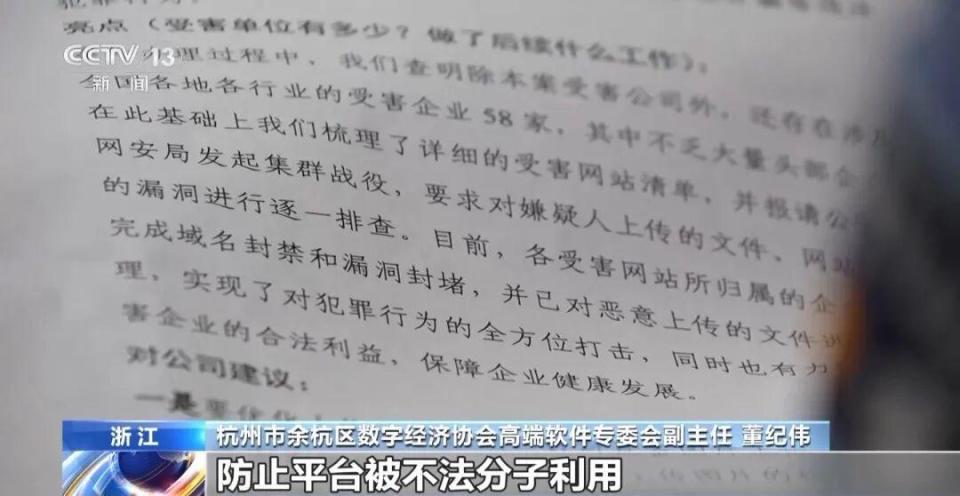 亮点（受害单位有多少？做了后续什么工作）：
理过程中，我们查明除本案受害公司外，还存在涉及
全国各地各行业的受害企业58家，其中不乏大量头部企
在此基础上我们梳理了详细的受害网站清单，并报请公
网安局发起集群战役，要求对嫌疑人上传的文件、网站
的漏洞进行逐一排查。目前，各受害网站所归属的企
完成域名封禁和漏洞封堵，并已对恶意上传的文件进
理，实现了对犯罪行为的全方位打击，同时也有力
害企业的合法利益，保障企业健康发展。
对公司建议：
一是要优化
CCTV 13
新闻
浙江
杭州市余杭区数字经济协会高端软件专委会副主任 董纪伟
防止平台被不法分子利用